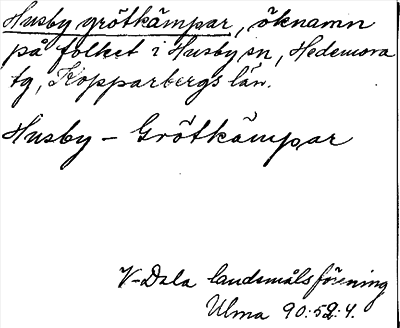 Husby grötkämpar, öknamn
på folket i Husby sn, Hedemora
tg, Kopparbergs län.
Husby - Grötkämpar
V-Dala landsmålsförening
Ulma 90:52:4.